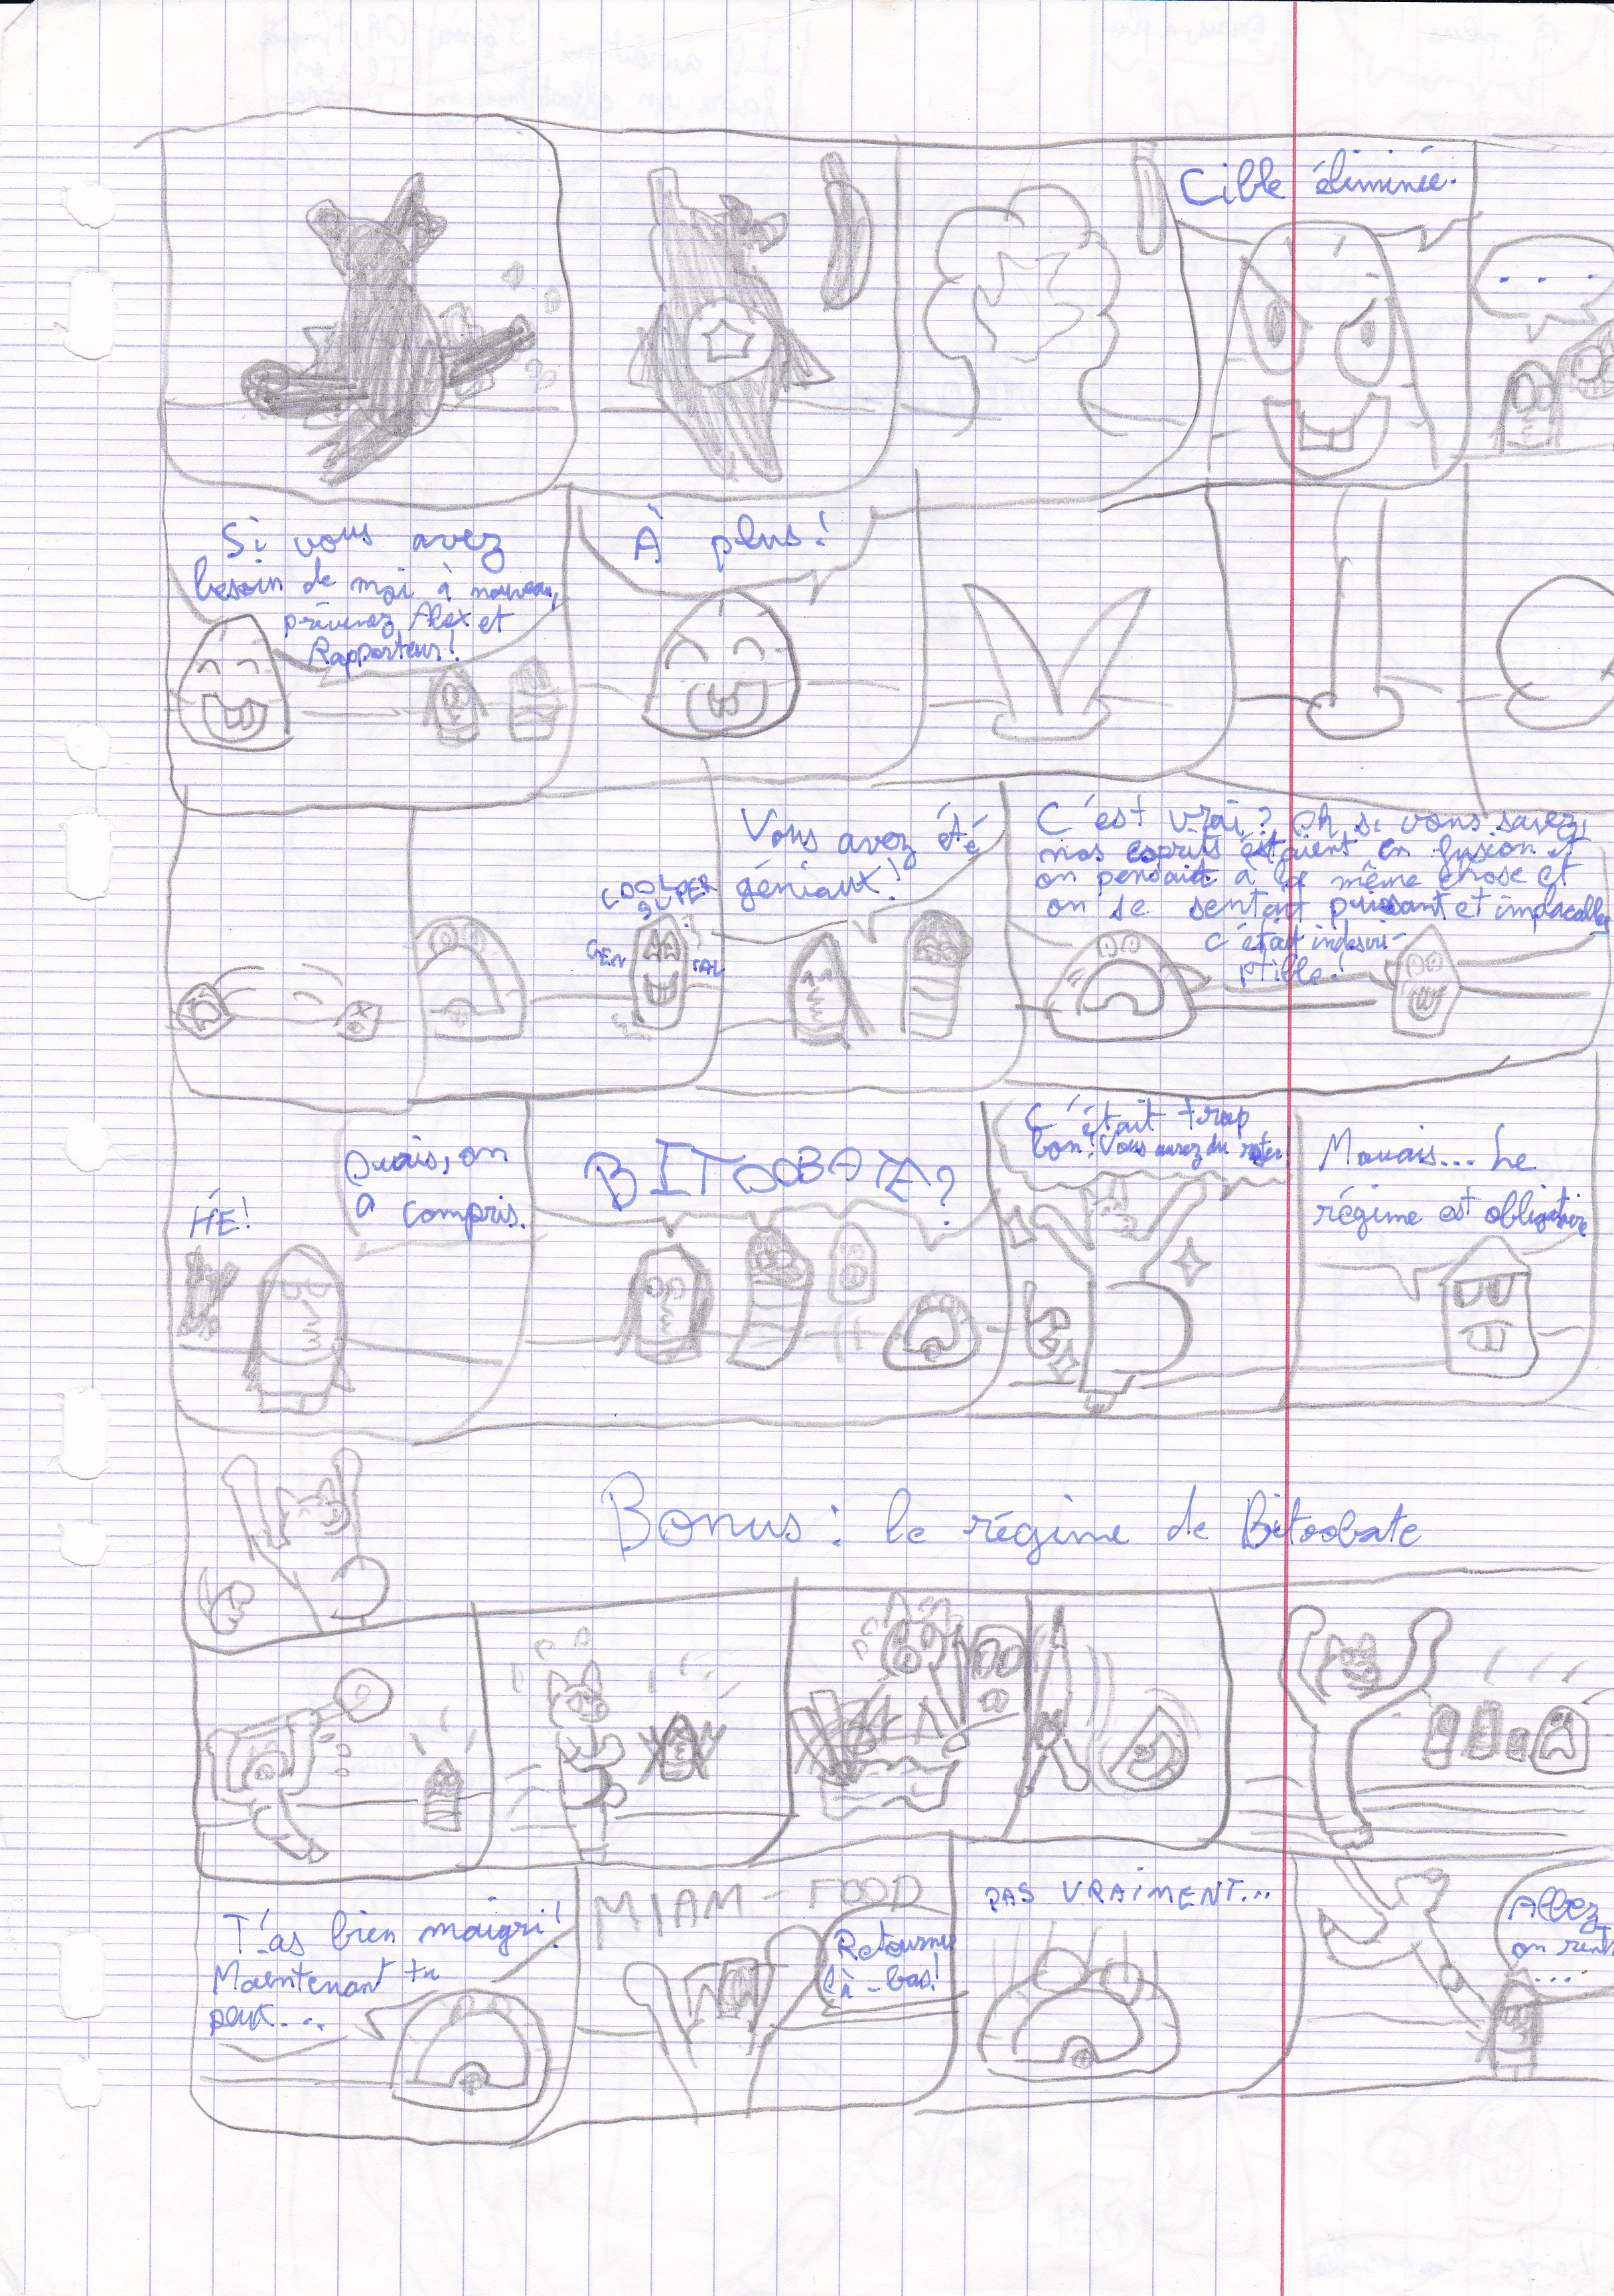 Cible éliminée.
...
Si vous avez
besoin de moi à nouveau,
prévenez Alex et
Rapporteur!
À plus!
COOL
SUPER
GÉN
IAL
Vous avez été
géniaux!
C'est vrai? Oh si vous savez,
nos esprits étaient en fusion et
on pensait à la même chose et
on se sentait puissant et implacable
c'était indescri-
ptible!
HÉ!
Ouais, on
a compris.
BITOOBATE?
C'était trop
bon! Vous aurez du rester
Mouais... Le
régime est obligatoire
Bonus: le régime de Bitoobate
T'as bien maigri!
Maintenant tu
peut...
MIAM-FOOD
Retourne
là-bas!
PAS VRAIMENT...
Allez,
on rent
...